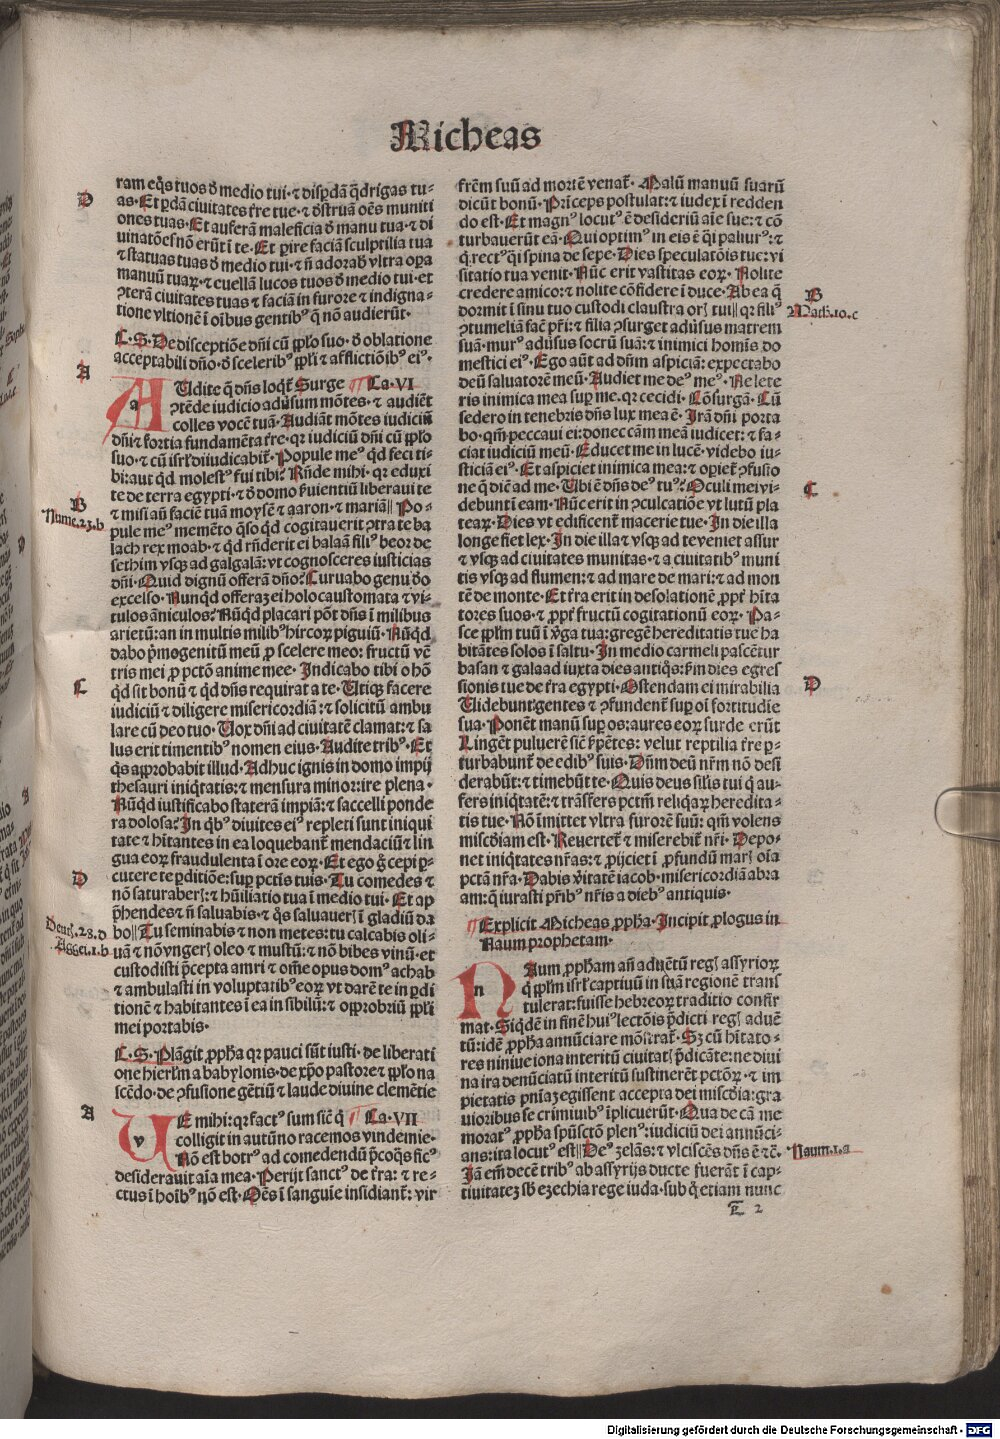 Micheas
D
ram eq̃s tuos d̕ medio tui· ⁊ disp̱dã q̃drigas tu⸗
as· Et p̱dã ciuitates t̃re tue· ⁊ d̕struã oẽs muniti
ones tuas· Et auferã maleficia d̕ manu tua· ⁊ di
uinatõẽs nõ erũt ĩ te· Et p̱ire faciã sculptilia tua
⁊ statuas tuas d̕ medio tui· ⁊ ñ adorab̕ vltra op̱a
manuũ tuaꝝ· ⁊ euellã lucos tuos d̕ medio tui· et
ꝯterã ciuitates tuas ⁊ faciã in furore ⁊ indigna⸗
tione vltionẽ ĩ oĩbus gentib⁹ q̃ nõ audierũt·
C·S· De disceptiõe dñi cũ ꝓplo suo· d̕ oblatione
acceptabili dño· d̕ scelerib⁹ ꝓpl̕i ⁊ afflictiõib⁹ ei⁹·
A
AUdite q̃ dñs loqt̃ Surge Ca·VI
a
ꝯtẽde iudicio adũsum mõtes· ⁊ audiẽt
colles vocẽ tuã· Audiãt mõtes iudiciũ
dñi ⁊ fortia fundamẽta t̃re· qꝛ iudiciũ dñi cũ ꝓplo
suo· ⁊ cũ isrl̕ diiudicabit̃· Popule me⁹ qd̕ feci ti⸗
bi: aut qd̕ molest⁹ fui tibi? Rñde mihi· qꝛ eduxi
te de terra egypti· ⁊ d̕ domo s̕uientiũ liberaui te
B
⁊ misi añ faciẽ tuã moysẽ ⁊ aaron· ⁊ mariã|| Po⸗
Nume.23.b
pule me⁹ memẽto q̃so qd̕ cogitauerit ꝯtra te ba
lach rex moab· ⁊ qd̕ rñderit ei balaã fili⁹ beor de
sethim vsqꝫ ad galgalã: vt cognosceres iusticias
dñi· Quid dignũ offerã dño? Curuabo genu d̕o
excelso· Nunqd̕ offeraꝫ ei holocaustomata ⁊ vi⸗
tulos ãniculos? Nũqd̕ placari põt dñs ĩ milibus
arietũ: an in multis milib⁹ hircoꝝ piguiũ· Nũqd̕
dabo p̃mogenitũ meũ ꝓ scelere meo: fructũ vẽ
tris mei ꝓ pctõ anime mee· Indicabo tibi o hõ
C
qd̕ sit bonũ ⁊ qd̕ dñs requirat a te· Utiqꝫ facere
iudiciũ ⁊ diligere misericordiã: ⁊ solicitũ ambu
lare cũ deo tuo· Uox dñi ad ciuitatẽ clamat: ⁊ sa
lus erit timentib⁹ nomen eius· Audite trib⁹· Et
q̃s approbabit illud· Adhuc ignis in domo impij
thesauri iniq̃tatis: ⁊ mensura minor: ire plena·
Nũqd̕ iustificabo staterã impiã: ⁊ saccelli ponde
ra dolosa? In qb⁹ diuites ei⁹ repleti sunt iniqui
tate ⁊ hĩtantes in ea loquebant̃ mendaciũ ⁊ lin
gua eoꝝ fraudulenta ĩ ore eoꝝ· Et ego g̃ cepi p̱⸗
D
cutere te p̱ditiõe: sup̱ pctĩs tuis· Tu comedes ⁊
nõ saturaber̕: ⁊ hũiliatio tua ĩ medio tui· Et ap
p̃hendes ⁊ ñ saluabis· ⁊ q̃s saluauer̕ ĩ gladiũ da
Deut.28.d
bo|| Tu seminabis ⁊ non metes: tu calcabis oli⸗
Aggei.1.b
uã ⁊ nõ vnger̕ oleo ⁊ mustũ: ⁊ nõ bibes vinũ· et
custodisti p̃cepta amri ⁊ om̃e opus dom⁹ achab
⁊ ambulasti in voluptatib⁹ eoꝝ vt darẽ te in p̱di
tionẽ ⁊ habitantes ĩ ea in sibilũ: ⁊ opprobriũ ꝓpl̕i
mei portabis·
C·S· Plãgit ꝓph̕a qꝛ pauci sũt iusti· de liberatĩ
one hierl̕m a babylonis· de xp̃o pastore ⁊ ꝓplo na
scẽdo· de ꝯfusione gẽtiũ ⁊ laude diuine clemẽtie
A
UE mihi: qꝛ fact⁹ sum sic̃ q̃ Ca·VII
v
colligit in autũno racemos vindemie·
Nõ est botr⁹ ad comedendũ p̃coq̃s fic⁹
desiderauit aĩa mea· Perijt sanct⁹ de t̃ra: ⁊ re⸗
ctus ĩ hoĩb⁹ nõ est· Oẽs ĩ sanguie insidiant̃: vir
frẽm suũ ad mortẽ venat̃· Malũ manuũ suarũ
dicũt bonũ· Princeps postulat: ⁊ iudex ĩ redden
do est· Et magn⁹ locut⁹ ẽ desideriũ aĩe sue: ⁊ cõ
turbauerũt eã· Qui optim⁹ in eis ẽ q̃i paliur⁹: ⁊
q̃ rect⁹ q̃i spina de sepe· Dies speculatõis tue: vi
sitatio tua venit· Nũc erit vastitas eoꝝ· Nolite
credere amico: ⁊ nolite cõfidere ĩ duce· Ab ea q̃
B
dormit ĩ sinu tuo custodi claustra or̕ tui|| qꝛ fili⁹
Math.10.c
ꝯtumeliã fac̃ pr̃i: ⁊ filia ꝯsurget adũsus matrem
suã· mur⁹ adũsus socrũ suã: ⁊ inimici homĩs do
mestici ei⁹· Ego aũt ad dñm aspiciã: expectabo
deũ saluatorẽ meũ· Audiet me de⁹ me⁹· Ne lete
ris inimica mea sup̱ me· qꝛ cecidi· Cõsurgã· Cũ
sedero in tenebris dñs lux mea ẽ· Irã dñi porta
bo· qm̃ peccaui ei: donec cãm meã iudicet: ⁊ fa⸗
ciat iudiciũ meũ· Educet me in lucẽ· videbo iu⸗
sticiã ei⁹· Et aspiciet inimica mea: ⁊ opiet̃ ꝯfusio
C
ne q̃ dic̃ ad me· Ubi ẽ dñs de⁹ tu⁹? Oculi mei vi⸗
debunt ĩ eam· Nũc erit in ꝯculcatiõe vt lutũ pla
teaꝝ· Dies vt edificent̃ macerie tue· In die illa
longe fiet lex· In die illa ⁊ vsqꝫ ad te veniet assur
⁊ vsqꝫ ad ciuitates munitas· ⁊ a ciuitatib⁹ muni
tis vsqꝫ ad flumen: ⁊ ad mare de mari: ⁊ ad mon
tẽ de monte· Et t̃ra erit in desolationẽ ꝓpt̕ hĩta
tores suos· ⁊ ꝓpt̕ fructũ cogitationũ eoꝝ· Pa⸗
sce ꝓplm̃ tuũ ĩ ṽga tua: gregẽ hereditatis tue ha
bitãtes solos ĩ saltu· In medio carmeli pascẽtur
basan ⁊ galaad iuxta dies antiq̃s: s̕m dies egres
D
sionis tue de t̃ra egypti· Ostendam ei mirabilia
Uidebunt gentes ⁊ ꝯfundent̃ sup̱ oĩ fortitudie
sua· Ponẽt manũ sup̱ os: aures eoꝝ surde erũt
Lingẽt puluerẽ sic̃ s̕pẽtes: velut reptilia t̃re p̱⸗
turbabunt̃ de edib⁹ suis· Dñm deũ nr̃m nõ desi
derabũt: ⁊ timebũt te· Quis deus sil̕is tui q̃ au⸗
fers iniq̃tatẽ: ⁊ trãsfers pctm̃ reliq̃aꝝ heredita⸗
tis tue· Nõ ĩmittet vltra furorẽ suũ: qm̃ volens
mis̃cdiam est· Reuertet̃ ⁊ miserebit̃ nr̃i· Depo⸗
net iniq̃tates nr̃as: ⁊ ꝓijciet ĩ ꝓfundũ mar̕ oĩa
pctã nr̃a· Dabis ṽitatẽ iacob· misericordiã abra
am: q̃ iurasti pr̃ib⁹ nr̃is a dieb⁹ antiquis·
Explicit Micheas ꝓph̕a· Incipit ꝓlogus in
Naum prophetam·
NAum ꝓph̕am añ aduẽtũ reg̕ assyrioꝝ
n
q̃ ꝓplm̃ isrl̕ captiuũ in suã regionẽ trans
tulerat: fuisse hebreoꝝ traditio confir
mat· Siqdẽ in fine hui⁹ lectõis p̃dicti reg̕ aduẽ
tũ: idẽ ꝓph̕a annũciare mõstrat̃· Sꝫ cũ hĩtato⸗
res niniue iona interitũ ciuitat̕ p̃dicãte: ne diui
na ira denũciatũ interitũ sustinerẽt pctõꝝ· ⁊ im
pietatis pñiaꝫ egissent accepta dei mis̃cdia: gra
uioribus se criminib⁹ ĩplicuerũt· Qua de cã me
morat⁹ ꝓph̕a spũsctõ plen⁹: iudiciũ dei annũci⸗
ans: ita locut⁹ est|| De⁹ zelãs: ⁊ vlciscẽs dñs ẽ ⁊c̃·
Naum.1.a
Iã em̃ decẽ trib⁹ ab assyrijs ducte fuerãt ĩ cap⸗
tiuitateꝫ sb̕ ezechia rege iuda· sub q̃ etiam nunc
P 2
Digitalisierung gefördert durch die Deutsche Forschungsgemeinschaft - DFG